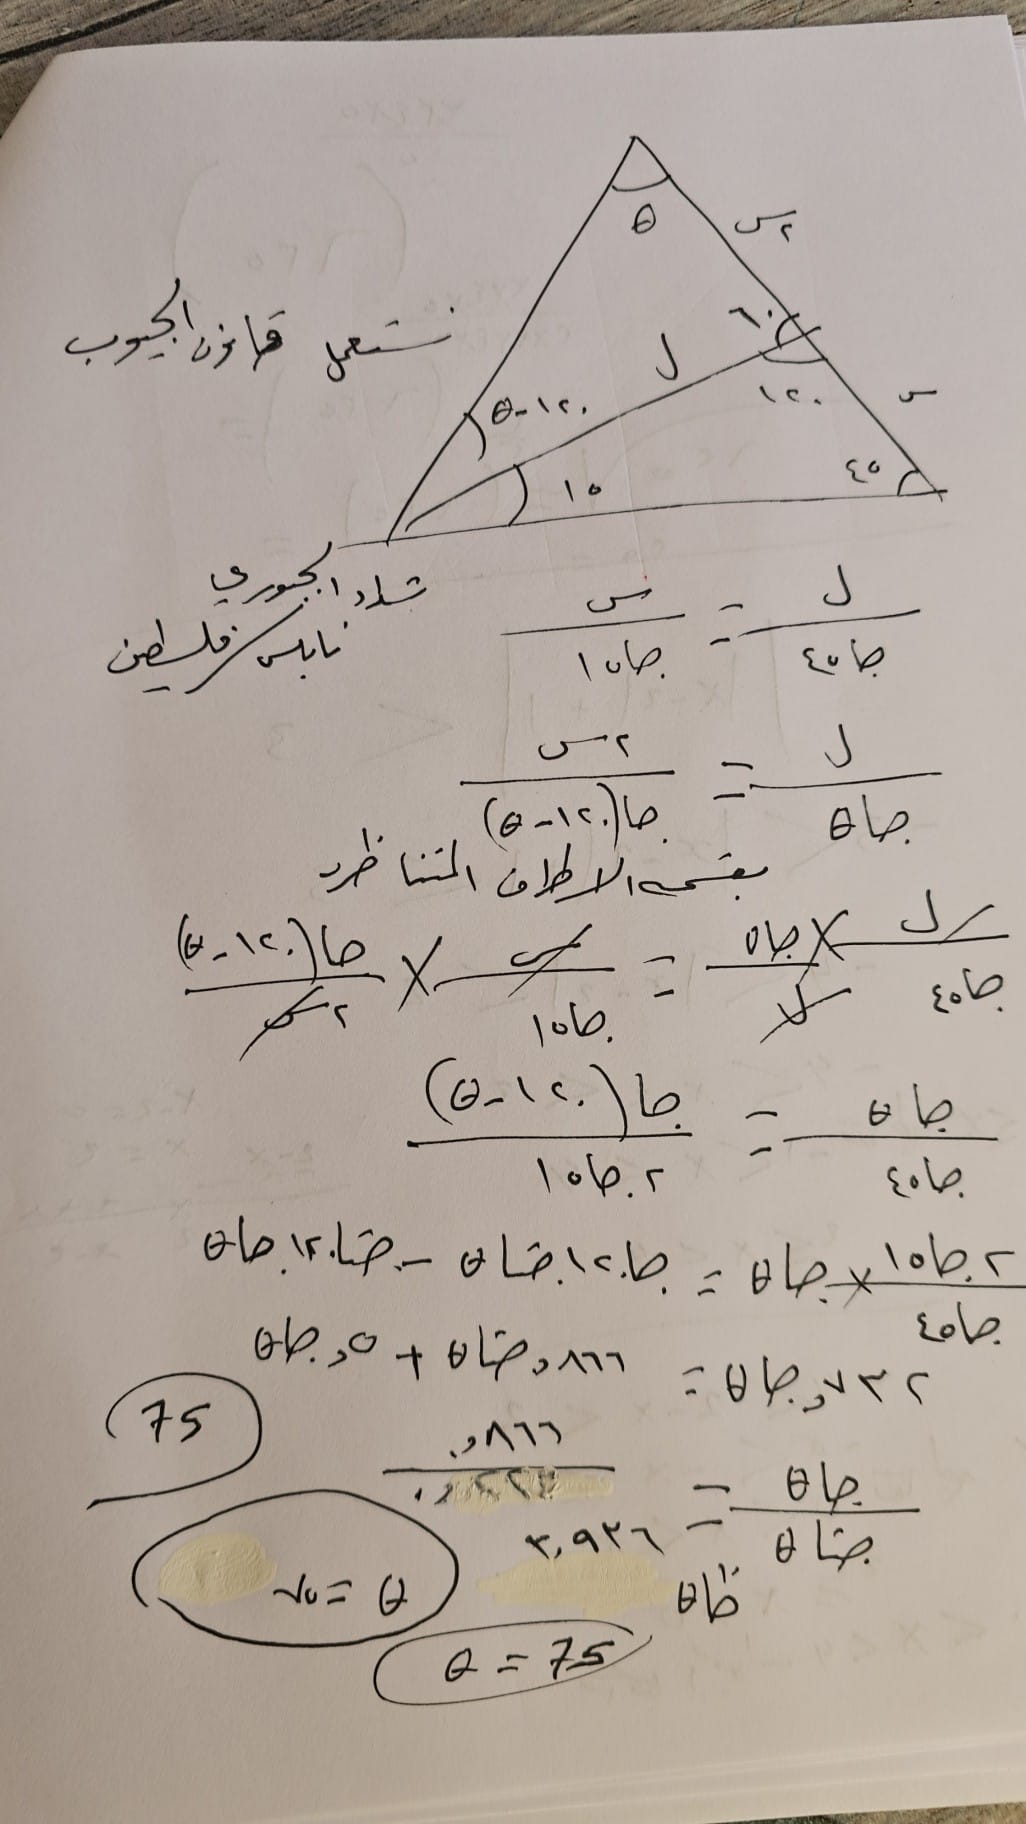 θ
٢س
٦٠
ل
نستعمل قانون الجيوب
١٢٠-θ
١٢٠
س
١٥
٤٥
شداد الجبوري
نابلس/فلسطين
ل/جا٤٥ = س/جا١٥
ل/جاθ = ٢س/جا(١٢٠-θ)
بقسمه الاطراف المتناظره
ل/جا٤٥ × جاθ/ل = س/جا١٥ × جا(١٢٠-θ)/٢س
جاθ/جا٤٥ = جا(١٢٠-θ)/٢جا١٥
٢جا١٥/جا٤٥ × جاθ = جا١٢٠جتاθ - جتا١٢٠جاθ
٠,٧٣٢جاθ = ٠,٨٦٦جتاθ + ٠,٥جاθ
جاθ/جتاθ = ٠,٨٦٦/
75
ظاθ
θ = ٧٥
θ = 75